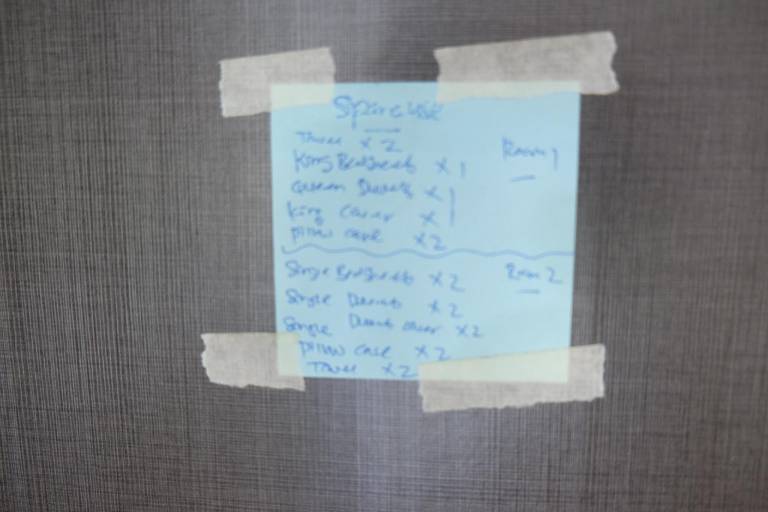 Towel x 2 Room 1
King Bedsheets x 1
Queen Duvets x 1
King cover x 1
pillow case x 2
Single Bedsheets x 2 Room 2
Single Duvets x 2
Single Duvet cover x 2
pillow case x 2
Towel x 2